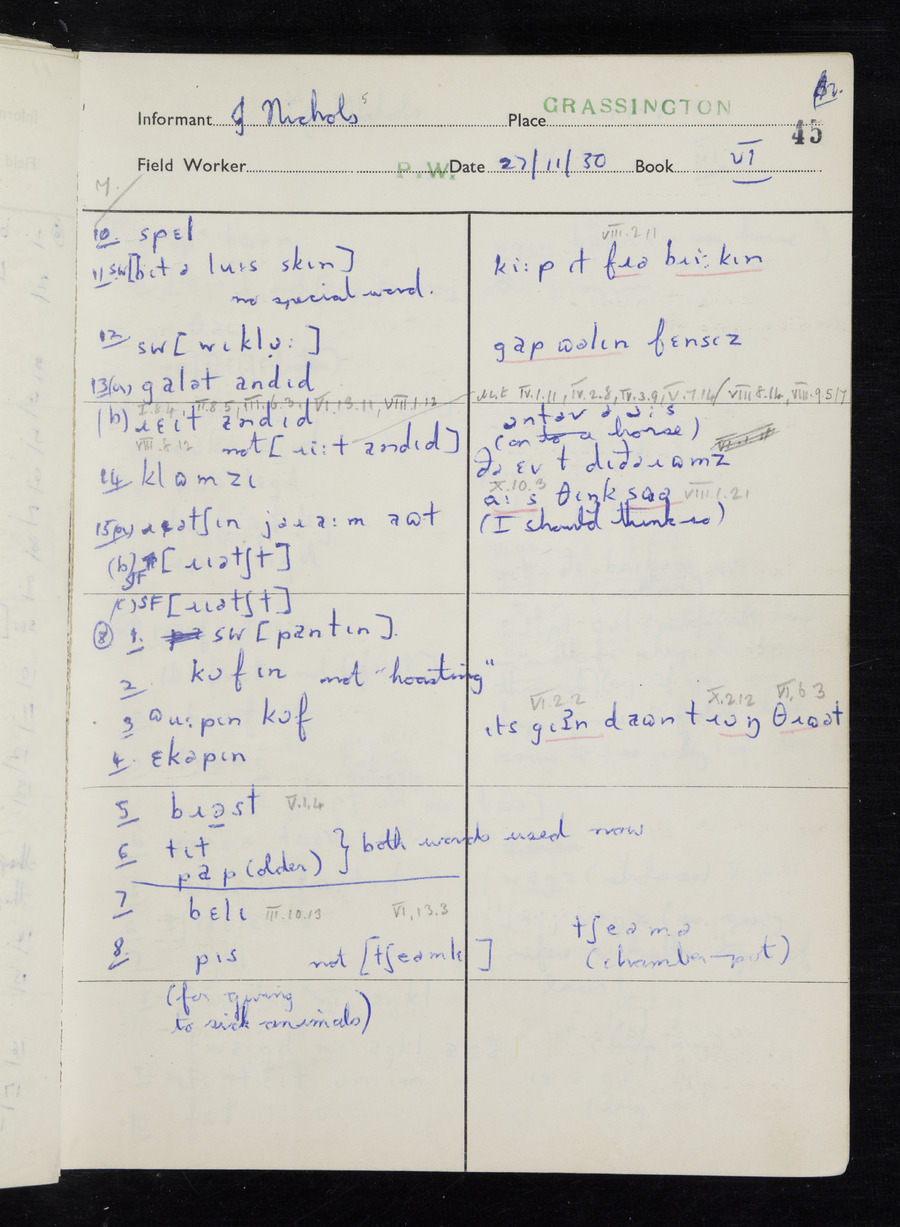 GRASSINGTON
Informant J Nichols Place
45
Field Worker P.W. Date 27/11/30 Book VI
7.
10. spɛl
VIII.2.11
11 SW [bɪt ə lu:s skɪn]
ki:p ɪt fɹə bɹi:kɪn
no special word.
12 SW [wɪklʊ:]
gap wɒlɪn fɛnsɪz
13(a) galət andɪd
I.8.4, II.8.5, III.6.3, VI.13.11, VIII.1.12
IV.1.11, IV.2.8, IV.3.9, V.7.14/ VIII 8.14, VIII.9.5/7
(b) ɹɛit andɪd
VIII.8.12
not [ɹi:t andɪd]
antəv ə ɔ:s
(on to a horse)
14 klɒmzɪ
X.10.3
VIII.1.21
a: s θɪŋk saə
(I should think so)
15(a) ɹɪətʃɪn
(b) SF [ɹɪətʃt]
(c) SF [ɹɪətʃt]
(8) 1. SW [pantɪn].
2 kɒfɪn not "hoasting"
VI.2.2 X.2.12 VI.6.3
3 ɒu:pɪn kɒf
ɪts gɪʔn daʊn t ɹɒŋ θɹɒət
4. ɛkəpɪn
5 bɹɪəst V.1.4
6 tɪt
pap (older) } both words used now
7 bɛlɪ III.10.13 VI.13.3
8. pɪs not [tʃeəmlɪ]
tʃeəmə
(chamber-pot)
(for giving
to sick animals)